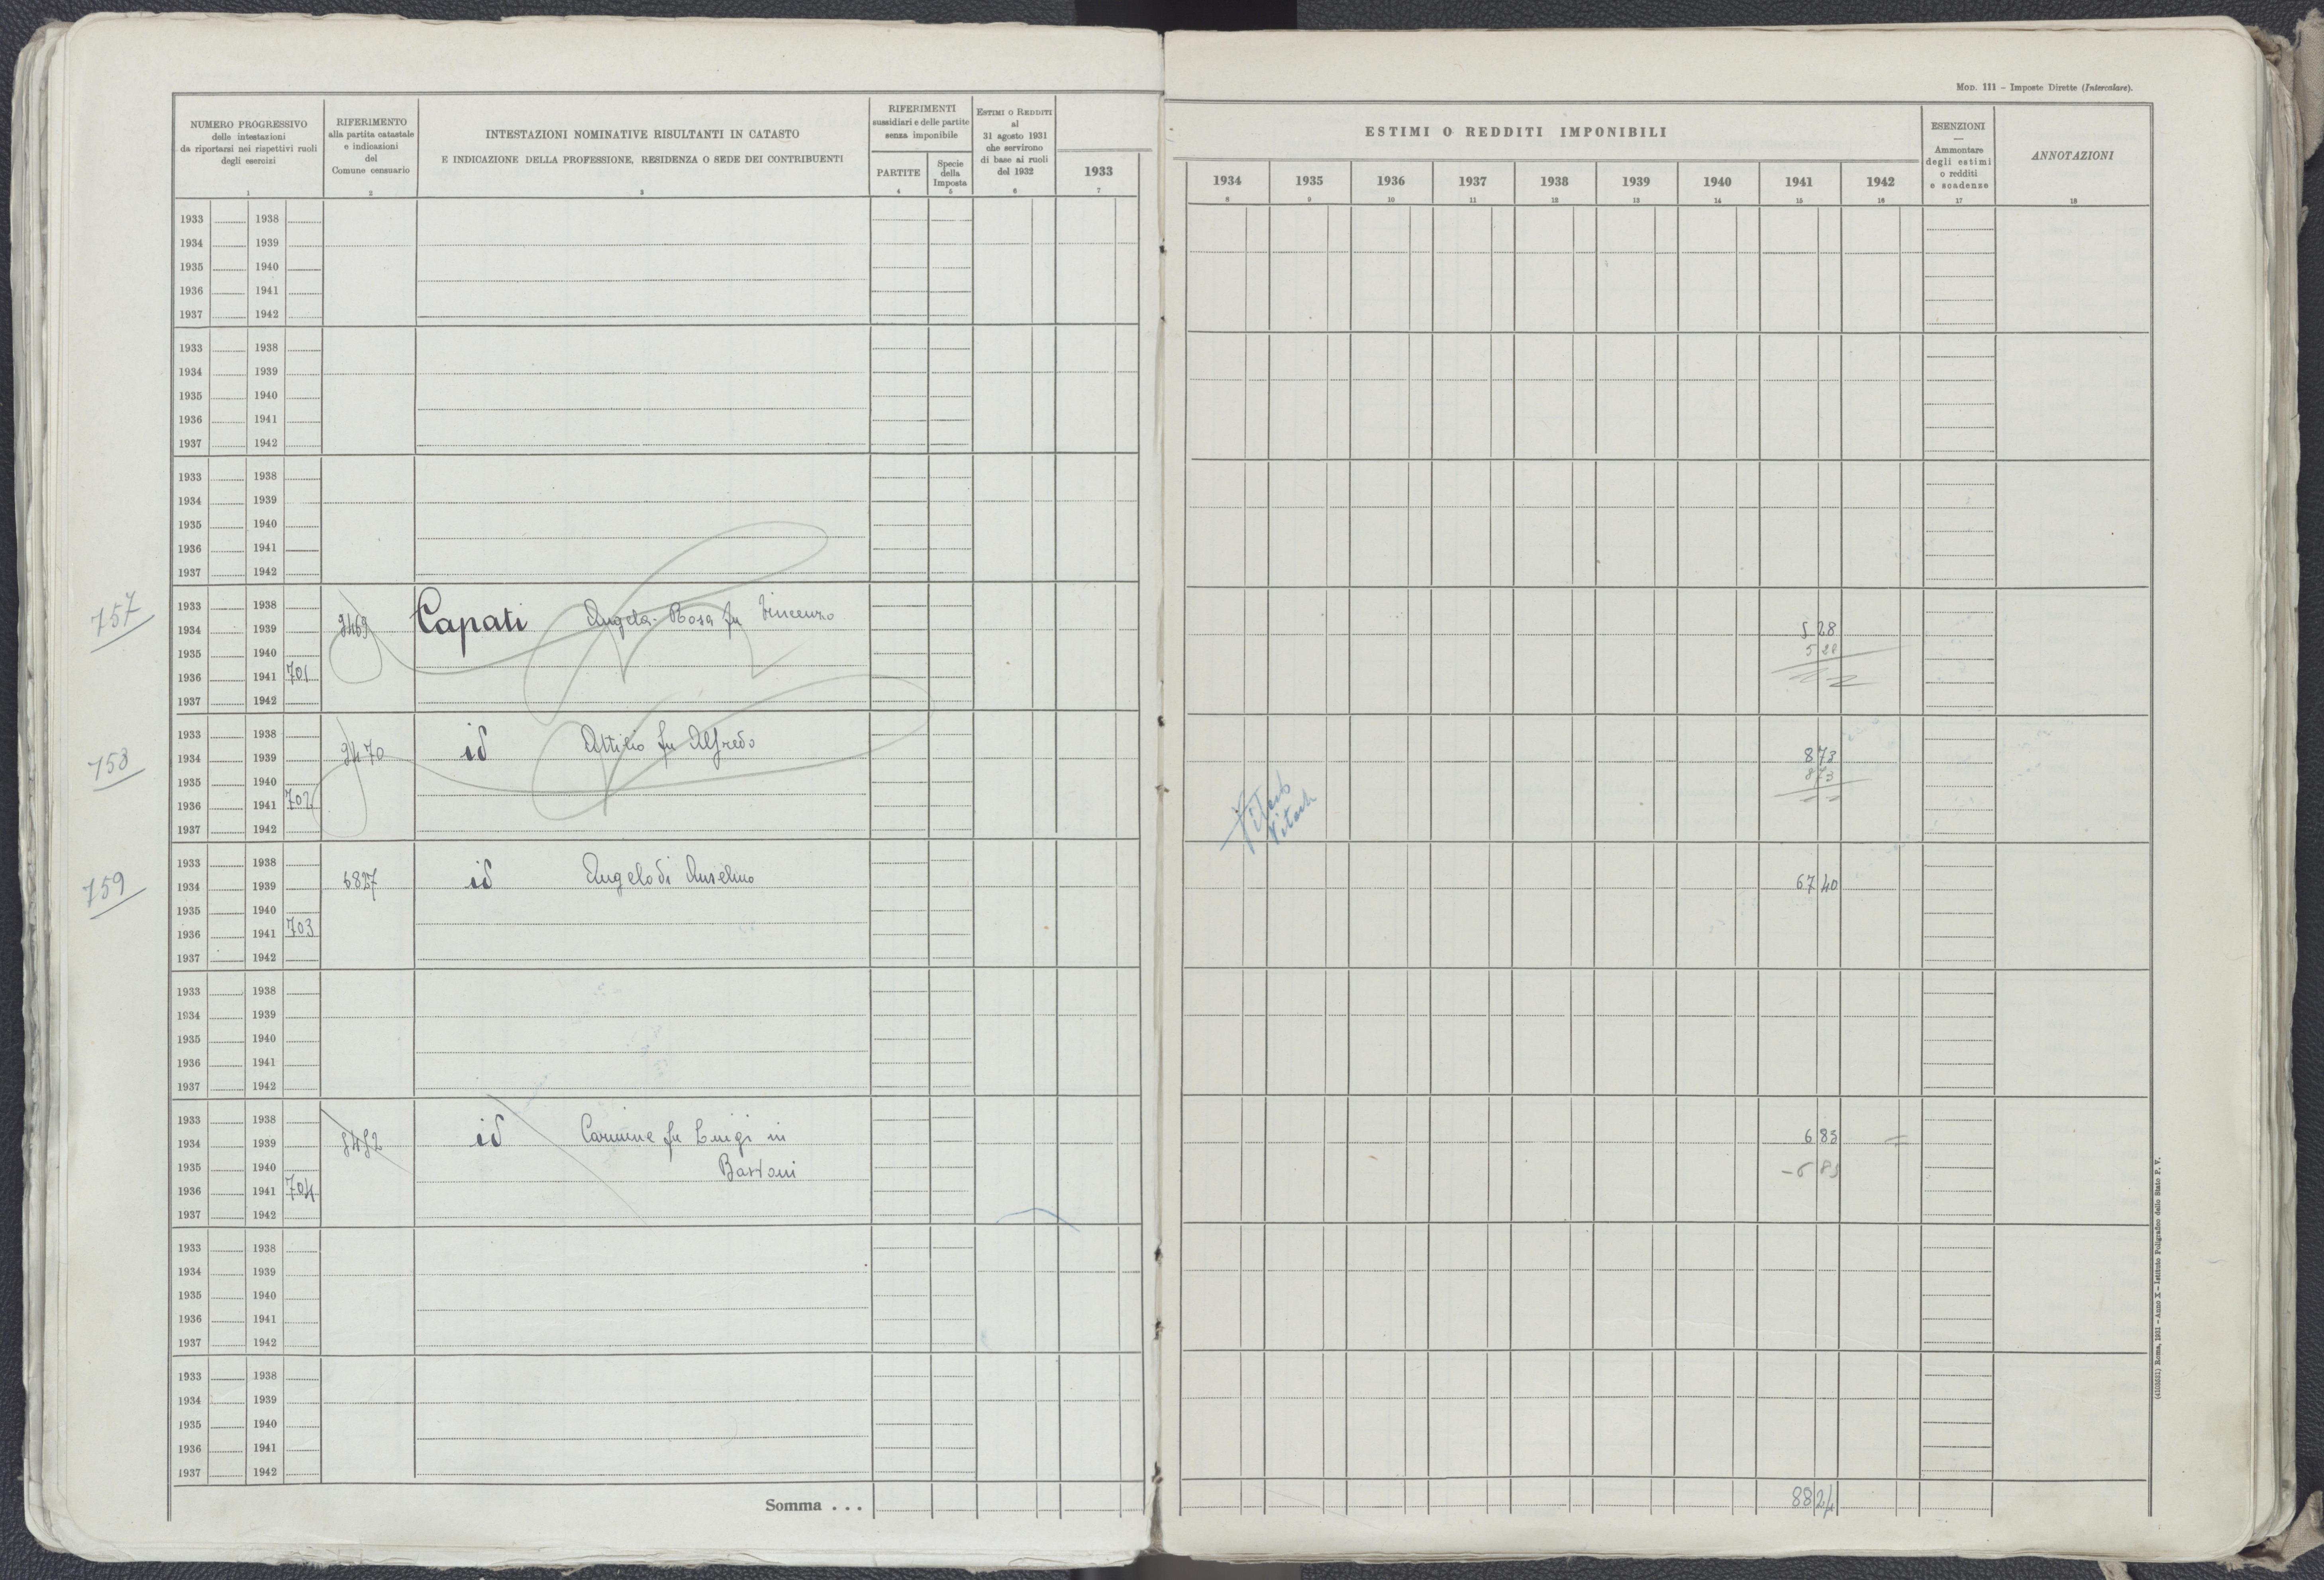 MOD. 111 – Imposte Dirette (Intercalare).
NUMERO PROGRESSIVO
delle intestazioni
da riportarsi nei rispettivi ruoli
degli esercizi
1
RIFERIMENTO
alla partita catastale
e indicazioni
del
Comune censuario
2
INTESTAZIONI NOMINATIVE RISULTANTI IN CATASTO
E INDICAZIONE DELLA PROFESSIONE, RESIDENZA O SEDE DEI CONTRIBUENTI
3
RIFERIMENTI
sussidiari e delle partite
senza imponibile
PARTITE
4
Specie
della
Imposta
5
ESTIMI O REDDITI
al
31 agosto 1931
che servirono
di base ai ruoli
del 1932
6
1933
7
ESTIMI O REDDITI IMPONIBILI
1934 1935 1936 1937 1938 1939 1940 1941 1942
8 9 10 11 12 13 14 15 16
ESENZIONI
—
Ammontare
degli estimi
o redditi
e scadenze
17
ANNOTAZIONI
18
1933 1938
1934 1939
1935 1940
1936 1941
1937 1942
1933 1938
1934 1939
1935 1940
1936 1941
1937 1942
1933 1938
1934 1939
1935 1940
1936 1941
1937 1942
757
1933 1938
1934 1939 Capati Angela-Rosa fu Vincenzo 5 28
1935 1940 5 28
1936 1941 701
1937 1942
758
1933 1938
1934 1939 3470 id Attilio fu Alfredo 8 73
1935 1940 8 73
1936 1941 702
1937 1942
759
1933 1938
1934 1939 6827 id Angelo di Anselmo 67 40
1935 1940
1936 1941 703
1937 1942
1933 1938
1934 1939
1935 1940
1936 1941
1937 1942
1933 1938
1934 1939 id Carmine fu Luigi in 6 83
1935 1940 Bastoni - 6 83
1936 1941 704
1937 1942
1933 1938
1934 1939
1935 1940
1936 1941
1937 1942
1933 1938
1934 1939
1935 1940
1936 1941
1937 1942
Somma . . . 88 24
(4103531) Roma, 1931 – Anno X – Istituto Poligrafico dello Stato P. V.